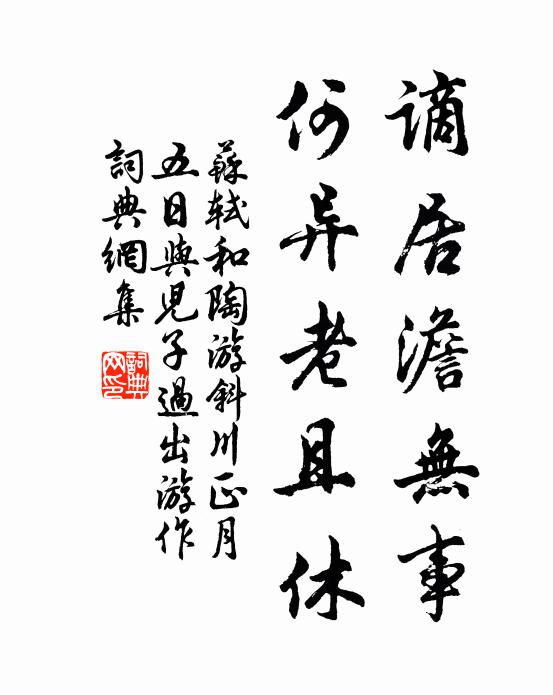 謫居澹無事
何异老且休
蘇軾和陶游斜川正月
五日與兒子過出游作
詞典網集
詞典網印